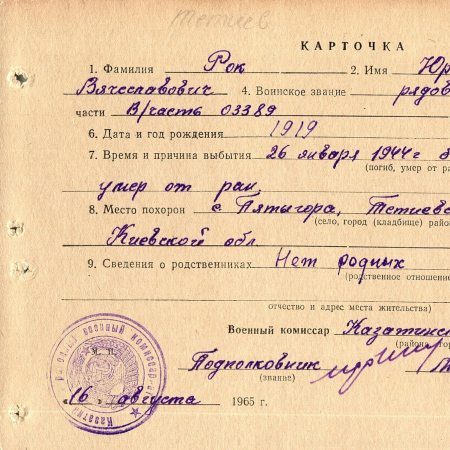 Тетиев
КАРТОЧКА
1. Фамилия Рок 2. Имя Юр
Вячеславович 4. Воинское звание рядов
части В/часть 03389
6. Дата и год рождения 1919
7. Время и причина выбытия 26 января 1944г
(погиб, умер от ра
умер от ран
8. Место похорон с Пятыгора, Тетиевс
(село, город (кладбище) райо
Киевской обл
9. Сведения о родственниках Нет родных
(родственное отношение
отчество и адрес места жительства)
Военный комиссар Казатинс
(района, го
М. П.
Подполковник
(звание)
16 августа 1965 г.